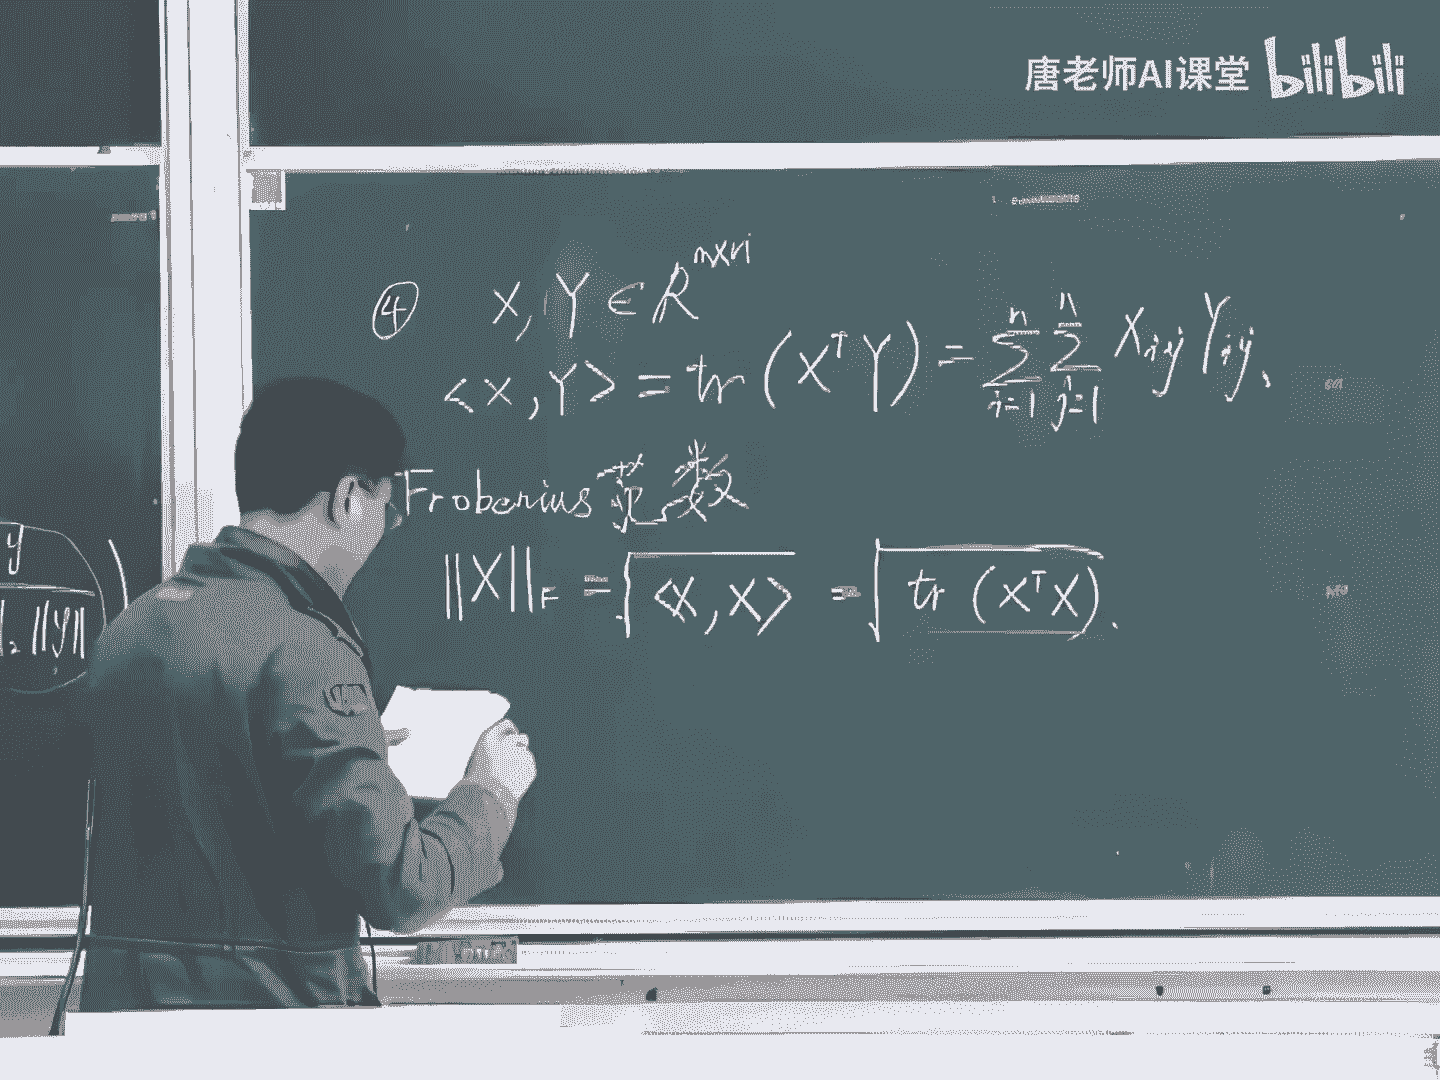 唐老师AI课堂 bilibili
④ X, Y ∈ R^{n×n}
<X, Y> = tr(X^T Y) = \sum_{i=1}^{n} \sum_{j=1}^{n} X_{ij} Y_{ij}.
Frobenius 范数
||X||_F = \sqrt{<X, X>} = \sqrt{tr(X^T X)}.
y
||y||